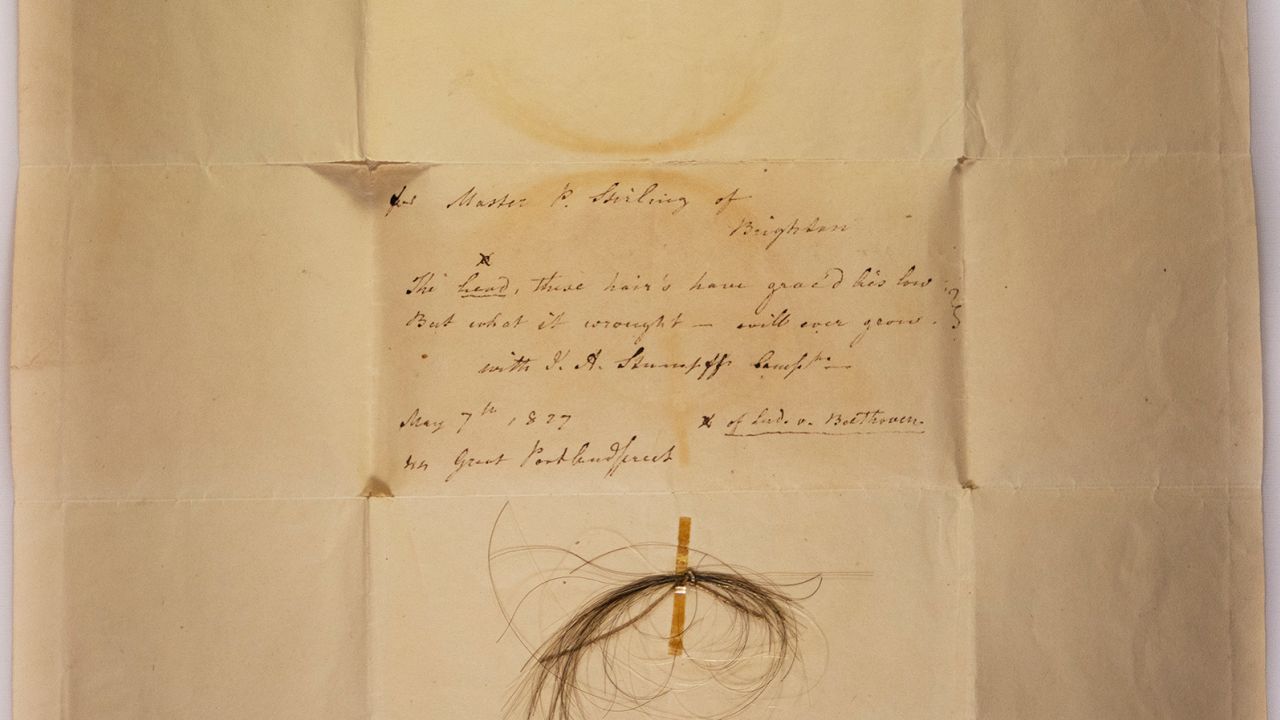 for Master P. Stirling of
Brighton
x
The head, these hair's have grac'd lies low
But what it wrought — will ever grow.
with J. A. Stumpff's Compts
May 7th, 1827
x of Lud. v. Beethoven.
44 Great Portlandstreet